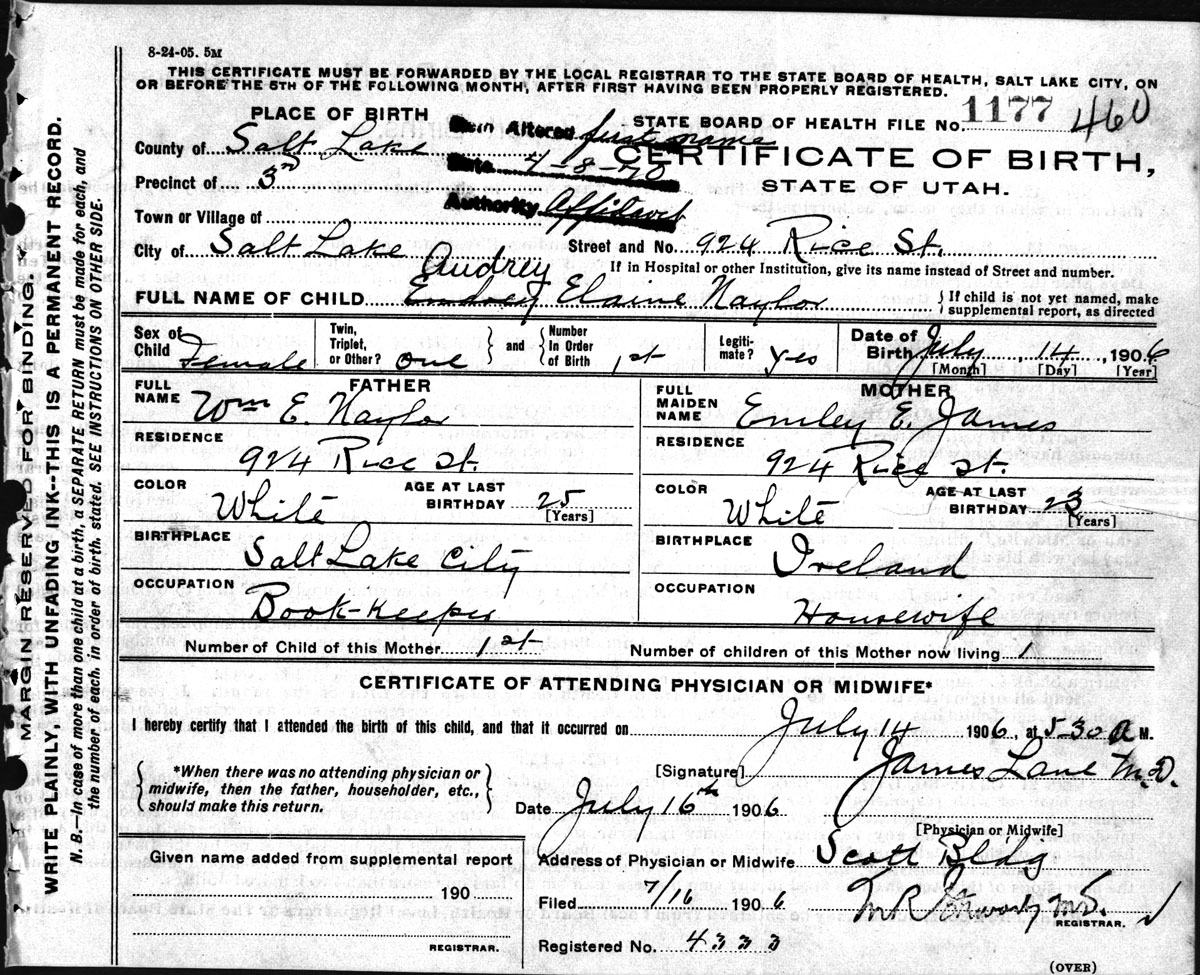 8-24-05. 5M
THIS CERTIFICATE MUST BE FORWARDED BY THE LOCAL REGISTRAR TO THE STATE BOARD OF HEALTH, SALT LAKE CITY, ON
OR BEFORE THE 5TH OF THE FOLLOWING MONTH, AFTER FIRST HAVING BEEN PROPERLY REGISTERED.
PLACE OF BIRTH
STATE BOARD OF HEALTH FILE No. 1177 460
Item Altered first name
Date 4-8-70
Authority Affidavit
CERTIFICATE OF BIRTH,
STATE OF UTAH.
County of Salt Lake
Precinct of 3rd
Town or Village of
City of Salt Lake Street and No. 924 Rice St.
If in Hospital or other Institution, give its name instead of Street and number.
Audrey
FULL NAME OF CHILD Elaine Naylor { If child is not yet named, make supplemental report, as directed
Sex of Child Female Twin, Triplet, or Other? one and Number In Order of Birth 1st Legiti-mate? Yes Date of Birth July 14, 1906
[Month] [Day] [Year]
FATHER
FULL NAME Wm E. Naylor
RESIDENCE
924 Rice St.
COLOR White AGE AT LAST BIRTHDAY 25 [Years]
BIRTHPLACE
Salt Lake City
OCCUPATION
Book-keeper
MOTHER
FULL MAIDEN NAME Emily E. James
RESIDENCE
924 Rice St.
COLOR White AGE AT LAST BIRTHDAY 23 [Years]
BIRTHPLACE
Ireland
OCCUPATION
Housewife
Number of Child of this Mother 1st Number of children of this Mother now living 1
CERTIFICATE OF ATTENDING PHYSICIAN OR MIDWIFE*
I hereby certify that I attended the birth of this child, and that it occurred on July 14 1906, at 5-30 a M.
{ *When there was no attending physician or midwife, then the father, householder, etc., should make this return. }
[Signature] James Lane M.D.
Date July 16th 1906
[Physician or Midwife]
Given name added from supplemental report
190
REGISTRAR.
Address of Physician or Midwife Scott Bldg
Filed 7/16 1906
M.D.
REGISTRAR.
Registered No. 4333
(OVER)
MARGIN RESERVED FOR BINDING.
WRITE PLAINLY, WITH UNFADING INK--THIS IS A PERMANENT RECORD.
N. B.—In case of more than one child at a birth, a SEPARATE RETURN must be made for each, and
the number of each, in order of birth, stated. SEE INSTRUCTIONS ON OTHER SIDE.